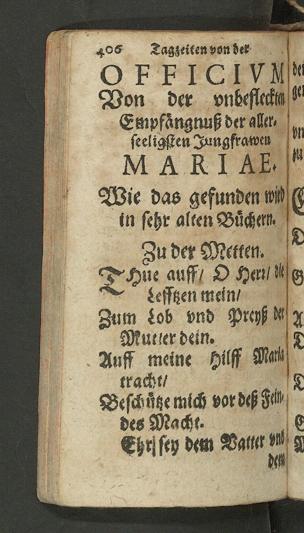 406 Tagzeiten von der
OFFICIVM
Von der vnbefleckten
Empfängnuß der aller-
seeligsten Jungfrawen
MARIAE.
Wie das gefunden wird
in sehr alten Büchern.
Zu der Metten.
THue auff/ O Herr/ die
Lefftzen mein/
Zum Lob vnd Preyß der
Mutter dein.
Auff meine Hilff Maria
tracht/
Beschütze mich vor deß Fein-
des Macht.
Ehr sey dem Vatter vnd
dem